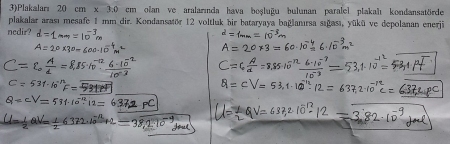 3)Plakaları 20 cm x 3,0 cm olan ve aralarında hava boşluğu bulunan paralel plakalı kondansatörde
plakalar arası mesafe 1 mm dir. Kondansatör 12 voltluk bir bataryaya bağlanırsa sığası, yükü ve depolanan enerji
nedir? d=1mm=10⁻³m
A=20x30=600·10⁻⁴m²
C=ε₀ A/d =8,85·10⁻¹² 6·10⁻²/10⁻³
C=531·10⁻¹²F=531pF
Q=CV=531·10⁻¹²12=6372 pC
U=½ QV=½ 6372·10⁻¹²12=38,2·10⁻⁹ joul
d=1mm=10⁻³m
A=20x3=60·10⁻⁴=6·10⁻³m²
C=ε₀ A/d =8,85·10⁻¹² 6·10⁻³/10⁻³=53,1·10⁻¹²=53,1pF
Q=CV=53,1·10⁻¹²12=637,2·10⁻¹²C=637,2 pC
U=½QV=637,2·10⁻¹²12=3,82·10⁻⁹ joul